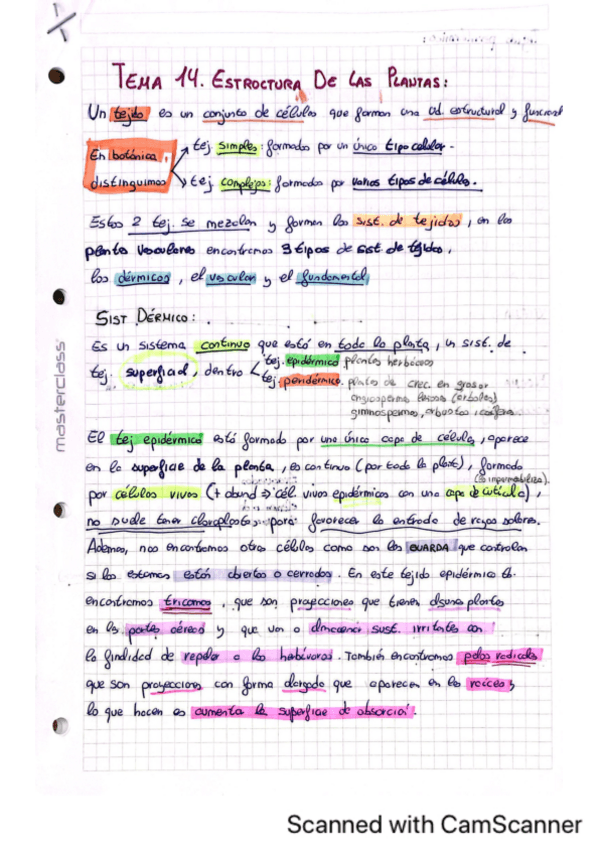 TEMA 14. ESTROCTURA DE LAS PLANTAS:
Un tejido es un conjunto de células que forman una ud. estructural y funcional
En botánica, distinguimos
tej simples: formados por un único tipo celular.
tej complejos: formados por varios tipos de células.
Estos 2 tej. se mezclan y forman los sist. de tejidos, en las
plantas vasculares encontramos 3 tipos de sist. de tejidos,
los dérmicos, el vascular y el fundamental
SIST DÉRMICO:
Es un sistema continuo que está en toda la planta, un sist. de
tej. superficial, dentro
tej. epidérmico plantas herbáceas
tej. peridérmico. plantas de crec. en grosor
angiospermas leñosas (árboles)
gimnospermas, arbustos
El tej epidérmico está formado por una única capa de células, aparece
en la superficie de la planta, es continuo (por toda la plant), formado
(es impermeabiliza)
por células vivas (+ abund => cél. vivas epidérmicas con una capa de cutícula),
no suele tener cloroplastos para favorecer la entrada de rayos solares.
Además, nos encontramos otras células como son las GUARDA que controlan
si los estomas están abiertos o cerrados. En este tejido epidérmico tb.
encontramos tricomas, que son proyecciones que tienen algunas plantas
en las partes aéreas y que van a almacenar sust. irritantes con
la findidad de repeler a los herbívoros. También encontramos pelos radicales
que son proyeccions con forma alargada que aparecen en las raíces y
lo que hacen es aumenta la superficie de absorción.
masterclass
Scanned with CamScanner